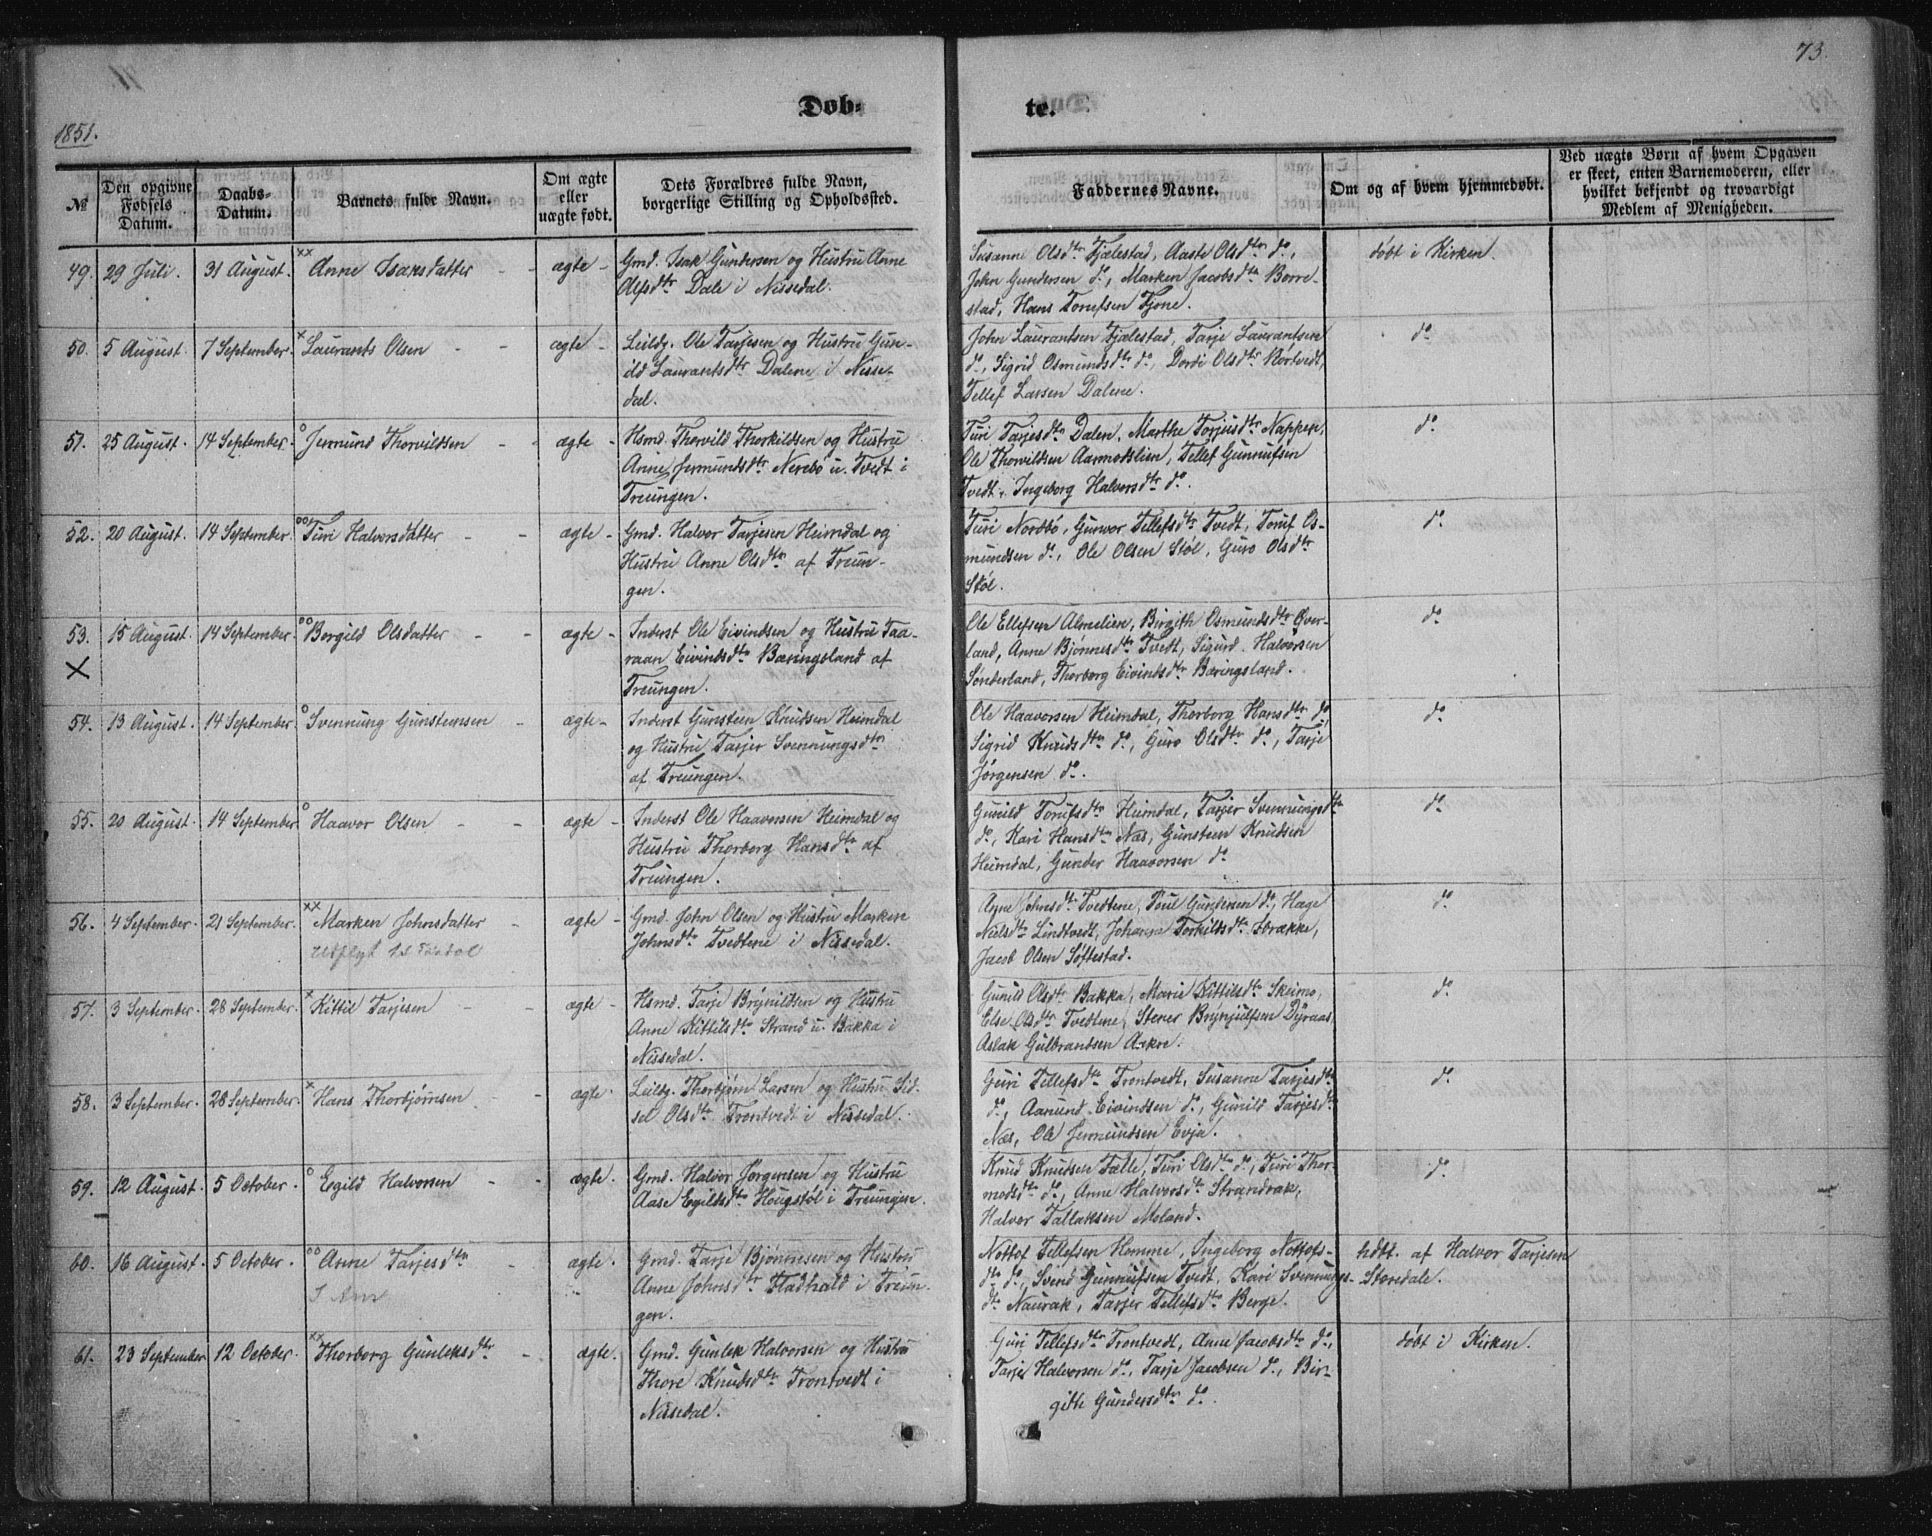 73.
Døb-
te.
1851.
№
Den opgivne Fødsels Datum.
Daabs-Datum.
Barnets fulde Navn.
Om ægte eller uægte født.
Dets Forældres fulde Navn, borgerlige Stilling og Opholdssted.
Faddernes Navne.
Om og af hvem hjemmedøbt.
Ved uægte Børn af hvem Opgaven er skeet, enten Barnemoderen, eller hvilket bekjendt og troværdigt Medlem af Menigheden.
49. 29 Juli. 31 August. xx Anne Isaksdatter - - ægte - Gmd. Isak Gundersen og Hustru Anne
Olfsdtr Dale i Nissedal.
Susanne Olsdtr Tjælestad, Aaste Olsdtr do,
John Gundersen do, Marken Jacobsdtr Borre-
stad, Hans Tonefsen Fjone.
døbt i Kirken.
50. 5 August. 7 September. x Laurants Olsen - - ægte - Leilb. Ole Tarjesen og Hustru Gun-
ild Laurantsdtr Dalene i Nisse-
dal.
John Laurantsen Tjælestad, Tarje Laurantsen
do, Sigrid Osmundsdtr do, Dordi Olsdtr Nortvedt,
Tellef Larsen Dalene.
do
51. 25 August. 14 September. o Jermund Thorvildsen - - ægte - Hsmd. Thorvild Thorkildsen og Hustru
Anne Jermundsdtr Nerebö u. Tvedt i
Treungen.
Turi Tarjesdtr Dalen, Marthe Torjusdtr Nappen,
Ole Thorvildsen Aamodslien, Tellef Gunnufsen
Tvedt, Ingeborg Halvorsdtr do.
do
52. 20 August. 14 September. oo Turi Halvorsdatter - - ægte - Gmd. Halvor Tarjesen Heimdal og
Hustru Anne Olsdtr af Treun-
gen.
Turi Nordbö, Gunvor Tellefsdtr Tvedt, Tonif Os-
mundsen do, Ole Olsen Støl, Guro Olsdtr
Støl.
do
53. 15 August. 14 September. oo Borgild Olsdatter - - ægte - Inderst Ole Eivindsen og Hustru Taa-
raan Eivindsdtr Bæringsland af
Treungen.
Ole Ellefsen Almelien, Birgith Osmundsdtr Over-
land, Anne Bjønnesdtr Tvedt, Sigurd Halvorsen
Sønderland, Thorborg Eivindsdtr Bæringsland.
do
X
54. 13 August. 14 September. o Svennung Gunstensen - ægte - Inderst Gunsteen Knudsen Heimdal
og Hustru Tarjer Svennungsdtr
af Treungen.
Ole Haavorsen Heimdal, Thorborg Hansdtr do,
Sigrid Knudsdtr do, Guro Olsdtr do, Tarje
Jørgensen do.
do
55. 20 August. 14 September o Haavor Olsen - - ægte - Inderst Ole Haavorsen Heimdal og
Hustru Thorborg Hansdtr af
Treungen.
Gunild Tonifsdtr Heimdal, Tarjer Svennungsdtr
do, Kari Hansdtr Næs, Gunsteen Knudsen
Heimdal, Gunder Haavorsen do
do
56. 4 September. 21 September. xx Marken Johnsdatter - ægte - Gmd. John Olsen og Hustru Marken
Johnsdtr Tvedtene i Nissedal.
Anne Johnsdtr Tvedtene, Poul Gunnersen do, Hage
Nielsdtr Lindtvedt, Johanne Torkildsdtr Brække,
Jacob Olsen Søftestad.
do
57. 3 September. 28 September. x Kittil Tarjesen - - ægte - Hsmd. Tarje Brynildsen og Hustru
Anne Kittilsdtr Strand u. Bakka i
Nissedal.
Gunild Olsdtr Bakka, Marie Kittilsdtr Skeimo,
Else Olsdtr Tvedtene, Stener Brynjulfsen Dyraas,
Aslak Gulbrandsen Askoe.
do
58. 3 September. 28 September. x Hans Thorbjørnsen - - ægte. Leilb. Thorbjørn Larsen og Hustru Sid-
sel Olsdtr Trontvedt i Nissedal.
Guri Tellefsdtr Trontvedt, Susanne Tarjesdtr
do, Aamund Eivindsen do, Gunild Tarjesdtr
Næs, Ole Jermundsen Evja.
do
59. 12 August. 5 October. o Egild Halvorsen - - ægte. Gmd. Halvor Jørgensen og Hustru
Aase Egildsdtr Hougstøl i Treungen.
Knud Knudsen Fælle, Turi Olsdtr do, Turi Thor-
modsdtr do, Anne Halvorsdtr Strandrak,
Halvor Tallaksen Moland.
do
60. 16 August. 5 October. oo Anne Tarjesdtr - ægte. Gmd. Tarje Bjønnesen og Hustru
Anne Johnsdtr Fladhald i Treun-
gen.
Nottof Tellefsen Homme, Ingeborg Nottofs-
dtr do, Svend Gunnufsen Tvedt, Kari Svennungs-
dtr Naurak, Tarjer Tellefsdtr Berge.
hdbt. af Halvor Tarjesen
Storedale.
61. 23 September 12 October. xx Thorborg Gunleksdtr - ægte. Gmd. Gunlek Halvorsen og Hustru
Thore Knudsdtr Trontvedt i
Nissedal.
Guri Tellefsdtr Trontvedt, Anne Jacobsdtr do,
Tarje Halvorsen do, Tarje Jacobsen do, Bir-
gitte Gundersdtr do.
døbt i Kirken.